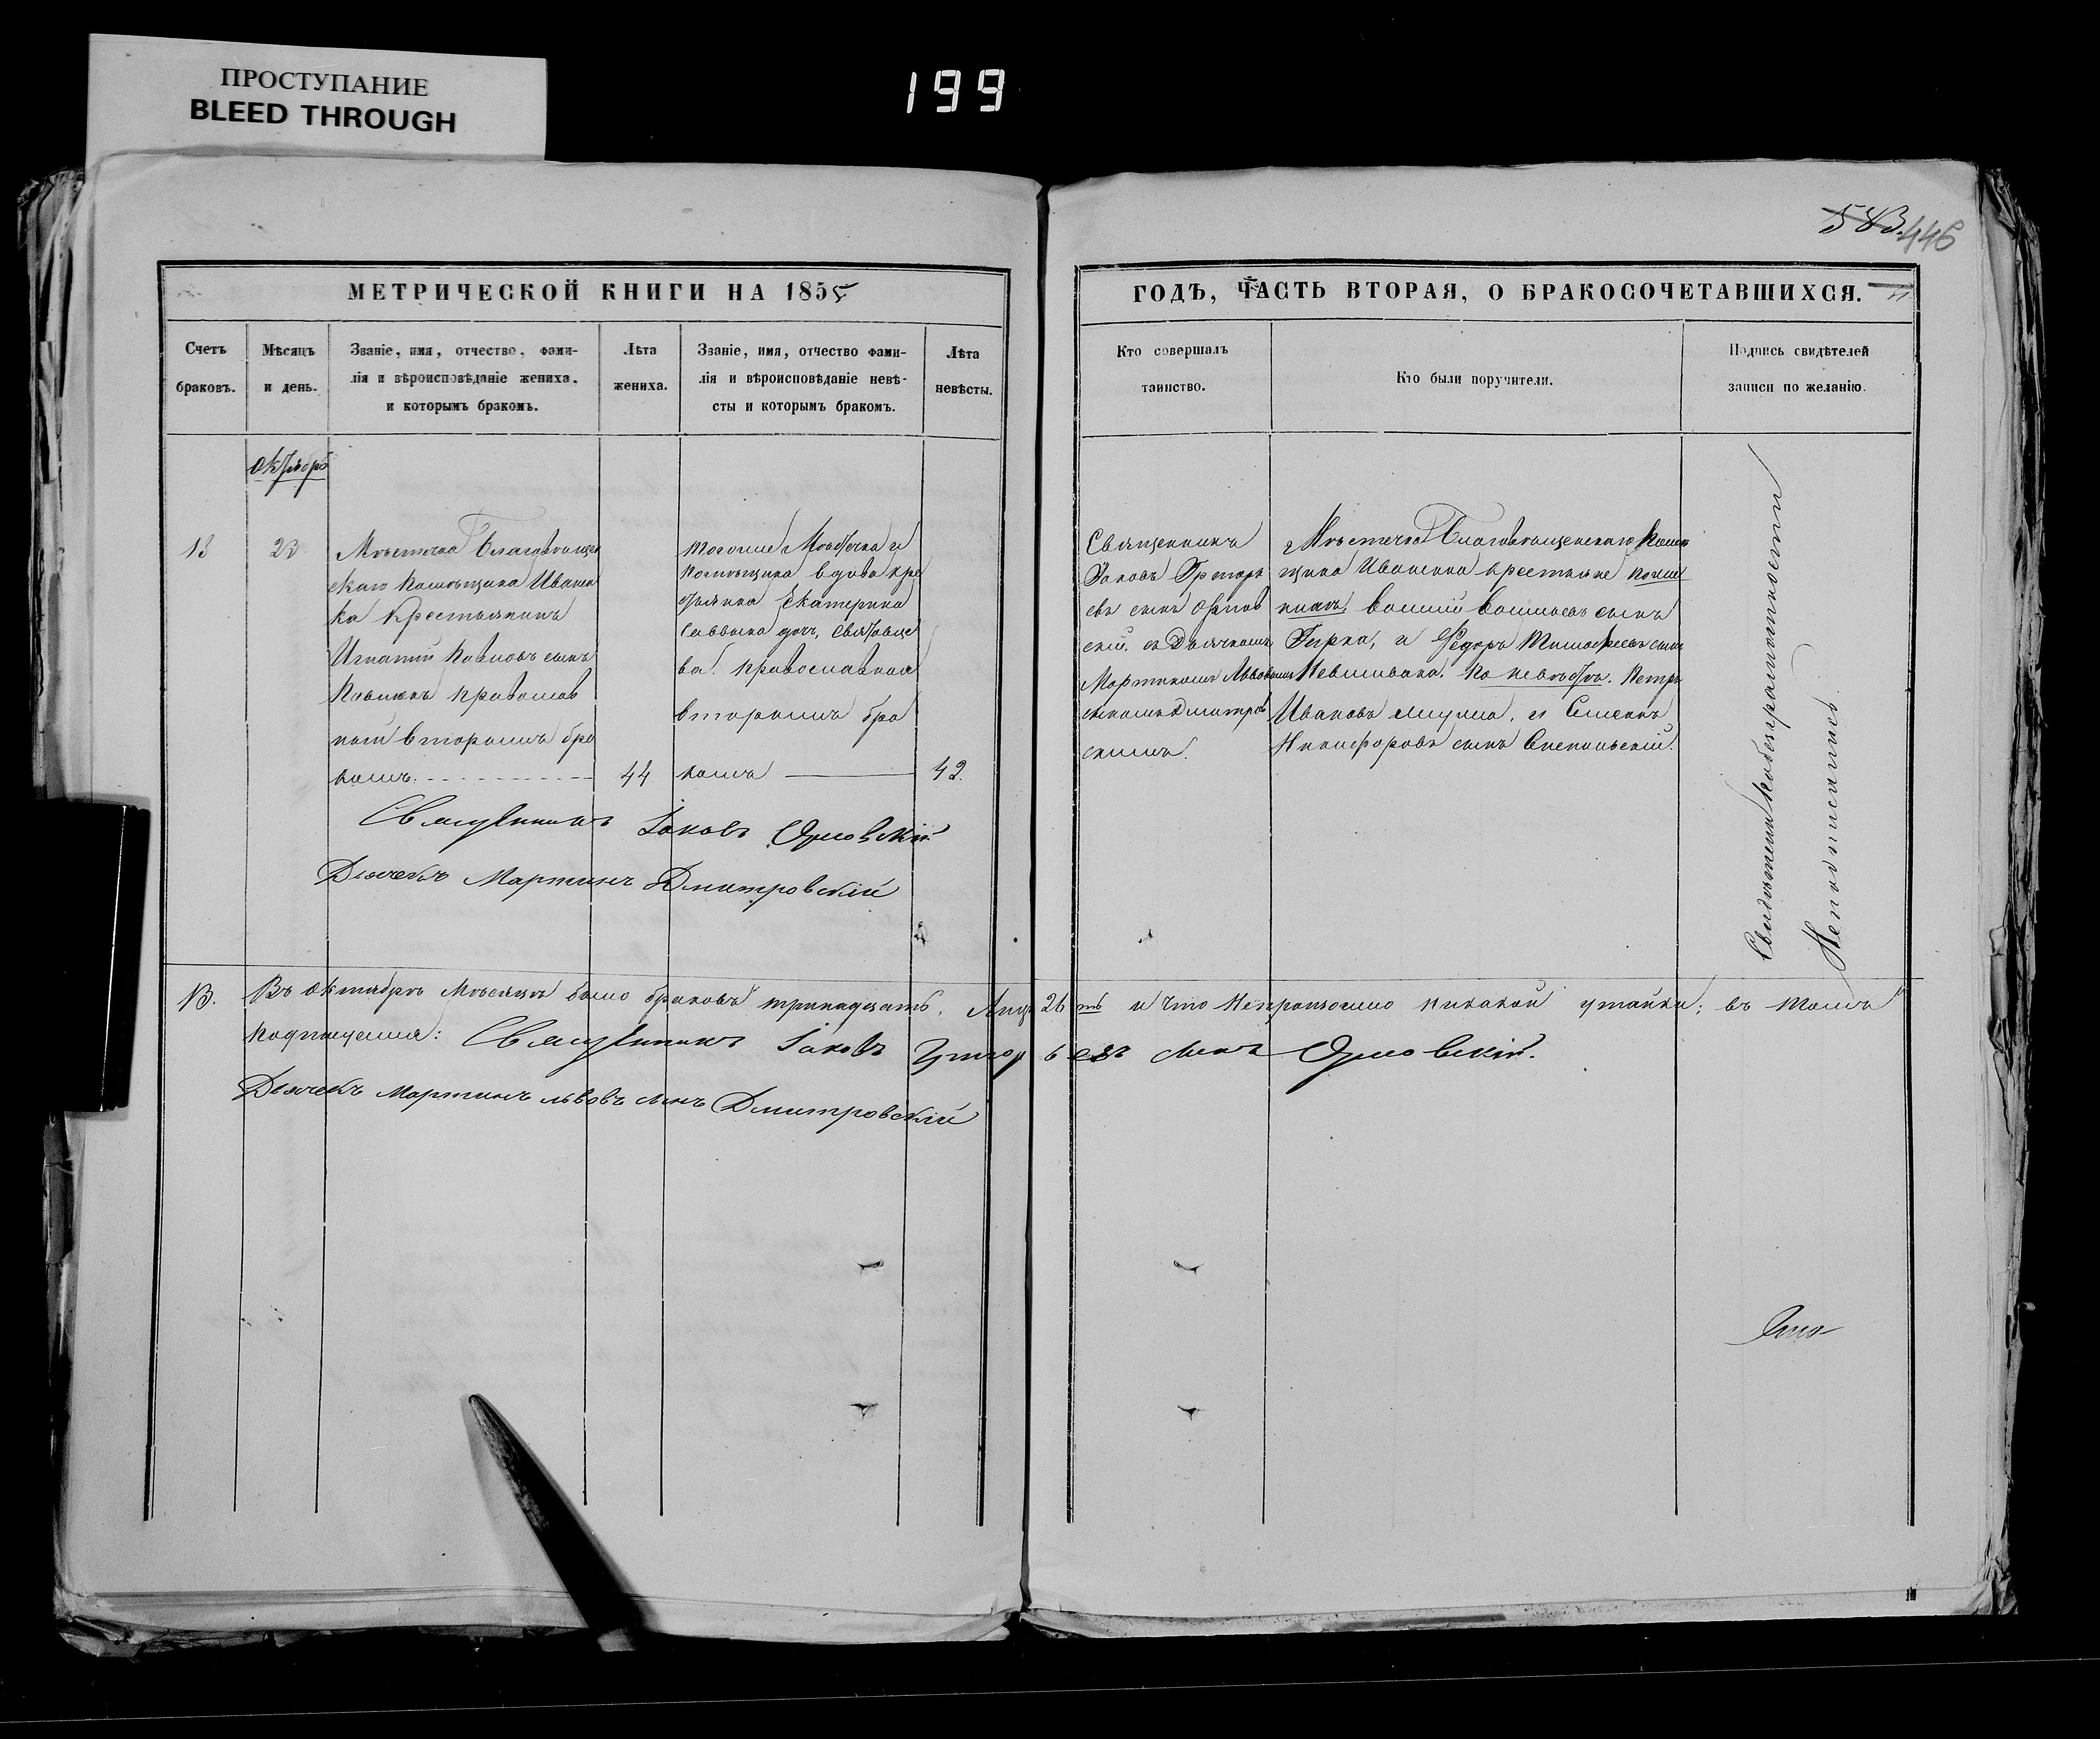 ПРОСТУПАНИЕ
BLEED THROUGH
199
583. 446
МЕТРИЧЕСКОЙ КНИГИ НА 1855
ГОДЪ, ЧАСТЬ ВТОРАЯ, О БРАКОСОЧЕТАВШИХСЯ.
Счетъ
браковъ.
Мѣсяцъ
и день.
Званіе, имя, отчество, фами-
лія и вѣроисповѣданіе жениха,
и которымъ бракомъ.
Лѣта
жениха.
Званіе, имя, отчество фами-
лія и вѣроисповѣданіе невѣ-
сты и которымъ бракомъ.
Лѣта
невѣсты.
Кто совершалъ
таинство.
Кто были поручители.
Подпись свидѣтелей
записи по желанію.
Октябрь
13
23
Мѣстечка Благовѣщен
скаго Помѣщика Иванен
ка Крестьянинъ
Игнатій Павловъ сынъ
православ
ный вторымъ бра
комъ.
44
тогоже Мѣстечка и
Помѣщика вдова кре
стьянка Екатерина
Саввина дочь,
ва. православная
вторымъ бра
комъ
42.
Священникъ
Іаковъ Григорь
евъ сынъ Орлов
скій. съ Дьячкомъ
Мартиномъ Львовымъ
Дмитров
скимъ.
Мѣстечка Благовѣщенскаго Помѣ
щика Иваненка крестьяне по же
нихѣ, сынъ
и Федоръ Тимофеевъ сынъ
По невѣстѣ. Петръ
Ивановъ и Симеонъ
Никифоровъ сынъ
Свидѣтели по безграмотности
Неподписались.
Священникъ Іаковъ Орловскій
Дьячекъ Мартинъ Дмитровскій
13.
Въ Октябрѣ Мѣсяцѣ было браковъ тринадцать, Лицъ 26ть и что непроизошло никакой утайки; въ томъ
подписуемся: Священникъ Іаковъ Григорьевъ сынъ Орловскій.
Дьячекъ Мартинъ Львовъ сынъ Дмитровскій